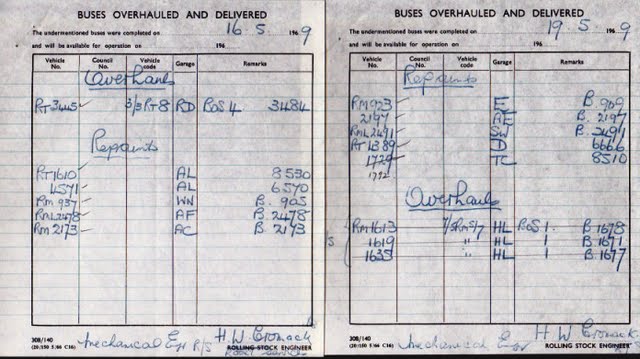 BUSES OVERHAULED AND DELIVERED
The undermentioned buses were completed on 16.5. 1969
and will be available for operation on 196
Vehicle No. Council No. Vehicle code Garage Remarks
Overhauls
RT3445 3/3RT8 RD BOS 4 3484
Repaints
RT1610 AL 8530
4571 AL 6570
RM 937 WN B. 905
RML2478 AF B. 2478
RM 2173 AC B. 2173
308/140
(20/150 5/66 C16)
Mechanical Eng R/S
H W Cromack
ROLLING STOCK ENGINEER
BUSES OVERHAULED AND DELIVERED
The undermentioned buses were completed on 19.5. 1969
and will be available for operation on 196
Vehicle No. Council No. Vehicle code Garage Remarks
Repaints
RM923 E B. 909
2197 AE B. 2197
RML2491 SW B. 2491
RT1389 D 6666
1729 TC 8510
1772
Overhauls
RM1613 HL BOS 1. B 1678
1619 " HL 1 B 1671
1635 " HL 1 B 1677
308/140
(20/150 5/66 C16)
Mechanical Eng
H W Cromack
ROLLING STOCK ENGINEER